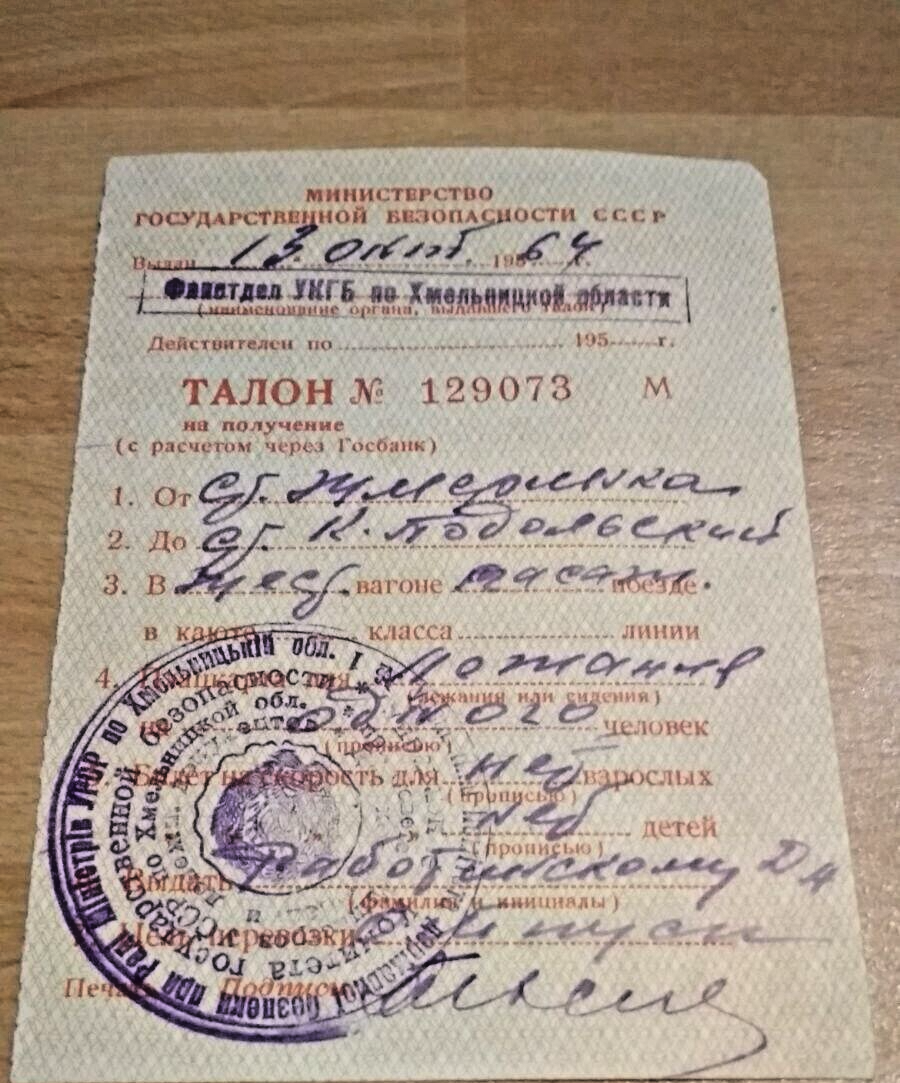 МИНИСТЕРСТВО
ГОСУДАРСТВЕННОЙ БЕЗОПАСНОСТИ СССР
Выдан 13 окт. 1964 г.
Финотдел УКГБ по Хмельницкой области
(наименование органа, выдавшего талон)
Действителен по 195 г.
ТАЛОН № 129073 М
на получение
(с расчетом через Госбанк)
1. От ст. Жмеринка
2. До ст. К. Подольский
3. В жест. вагоне пасаж. поезде
в каюте класса линии
4. Плацкарта для лежания
(лежания или сидения)
на одного человек
(прописью)
Билет на скорость для нет взрослых
(прописью)
нет детей
(прописью)
Выдать
(фамилия и инициалы)
Цель перевозки
Печать Подпись
Міністрів УРСР по Хмельницькій обл.
безпеки при Раді
Комитета государственной безопасности
по Хмельницкой обл.